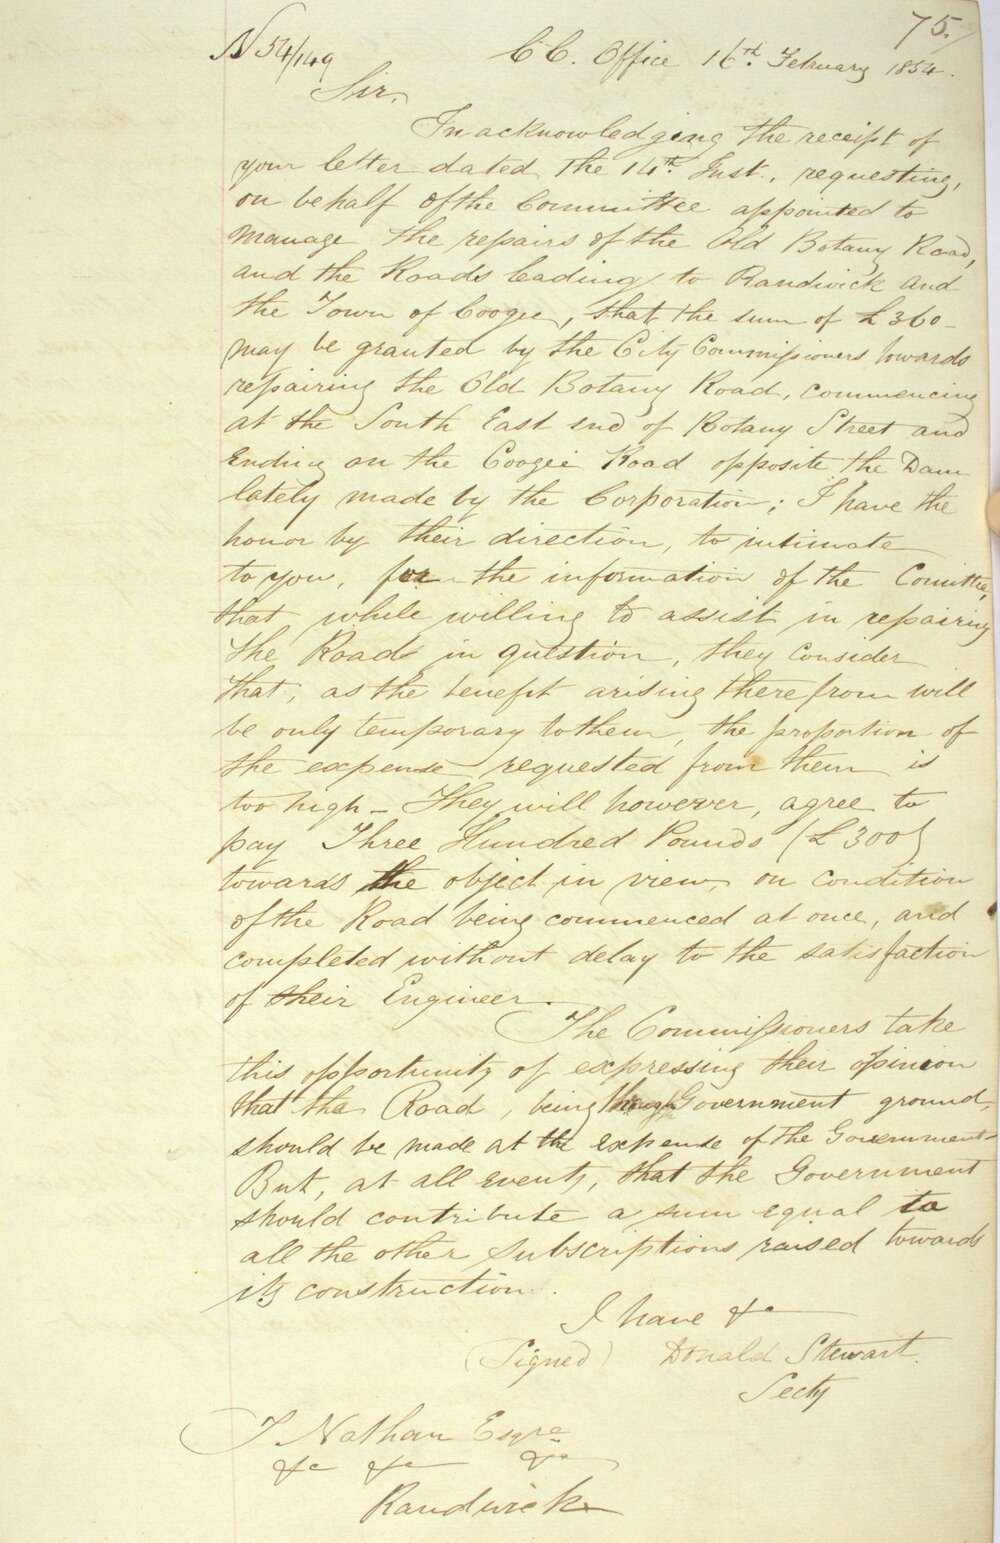 75.
N 54/149 C C. Office 16th. February 1854.
Sir,
In acknowledging the receipt of
your letter dated the 14th. Inst., requesting,
on behalf of the Committee appointed to
manage the repairs of the Old Botany Road,
and the Roads leading to Randwick and
the Town of Coogee, that the sum of £360-
may be granted by the City Commissioners towards
repairing the Old Botany Road, commencing
at the South East end of Botany Street and
Ending on the Coogee Road opposite the Dam
lately made by the Corporation; I have the
honor by their direction, to intimate
to you, for the information of the Comittee,
that while willing to assist in repairing
the Road in question, they consider
that, as the benefit arising therefrom will
be only temporary to them, the proportion of
the expense requested from them is
too high - They will however, agree to
pay Three Hundred Pounds (£300)
towards the object in view, on condition
of the Road being commenced at once, and
completed without delay to the satisfaction
of their Engineer.
The Commissioners take
this opportunity of expressing their opinion
that the Road, being through Government ground,
should be made at the expense of the Government
But, at all events, that the Government
should contribute a sum equal to
all the other subscriptions raised towards
its construction.
I have &c
(Signed) Donald Stewart.
Secty
J Nathan Esqre
&c &c &c
Randwick